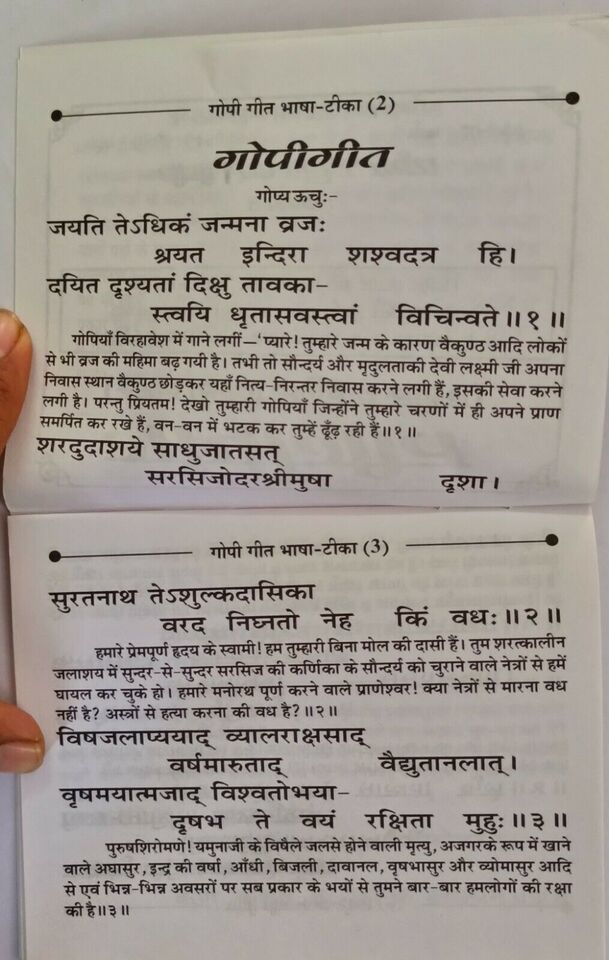 गोपी गीत भाषा-टीका (2)
गोपीगीत
गोप्य ऊचुः-
जयति तेऽधिकं जन्मना व्रजः
श्रयत इन्दिरा शश्वदत्र हि।
दयित दृश्यतां दिक्षु तावका-
स्त्वयि धृतासवस्त्वां विचिन्वते॥१॥
गोपियाँ विरहावेश में गाने लगीं—'प्यारे! तुम्हारे जन्म के कारण वैकुण्ठ आदि लोकों
से भी व्रज की महिमा बढ़ गयी है। तभी तो सौन्दर्य और मृदुलताकी देवी लक्ष्मी जी अपना
निवास स्थान वैकुण्ठ छोड़कर यहाँ नित्य-निरन्तर निवास करने लगी हैं, इसकी सेवा करने
लगी है। परन्तु प्रियतम! देखो तुम्हारी गोपियाँ जिन्होंने तुम्हारे चरणों में ही अपने प्राण
समर्पित कर रखे हैं, वन-वन में भटक कर तुम्हें ढूँढ़ रही हैं॥१॥
शरदुदाशये साधुजातसत्
सरसिजोदरश्रीमुषा दृशा।
गोपी गीत भाषा-टीका (3)
सुरतनाथ तेऽशुल्कदासिका
वरद निघ्नतो नेह किं वधः॥२॥
हमारे प्रेमपूर्ण हृदय के स्वामी! हम तुम्हारी बिना मोल की दासी हैं। तुम शरत्कालीन
जलाशय में सुन्दर-से-सुन्दर सरसिज की कर्णिका के सौन्दर्य को चुराने वाले नेत्रों से हमें
घायल कर चुके हो। हमारे मनोरथ पूर्ण करने वाले प्राणेश्वर! क्या नेत्रों से मारना वध
नहीं है? अस्त्रों से हत्या करना की वध है?॥२॥
विषजलाप्ययाद् व्यालराक्षसाद्
वर्षमारुताद् वैद्युतानलात्।
वृषमयात्मजाद् विश्वतोभया-
दृषभ ते वयं रक्षिता मुहुः॥३॥
पुरुषशिरोमणे! यमुनाजी के विषैले जलसे होने वाली मृत्यु, अजगरके रूप में खाने
वाले अघासुर, इन्द्र की वर्षा, आँधी, बिजली, दावानल, वृषभासुर और व्योमासुर आदि
से एवं भिन्न-भिन्न अवसरों पर सब प्रकार के भयों से तुमने बार-बार हमलोगों की रक्षा
की है॥३॥